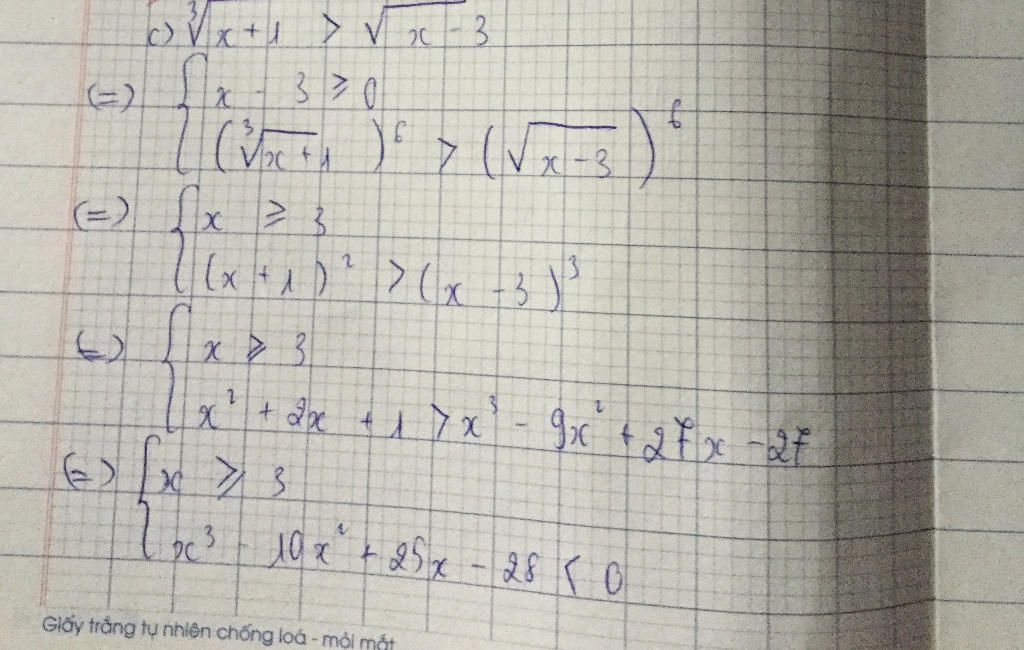 c) ∛(x+1) > √(x-3)
(=) { x - 3 ≥ 0
(∛(x+1))⁶ > (√(x-3))⁶
(=) { x ≥ 3
(x+1)² > (x-3)³
(=) { x ≥ 3
x² + 2x + 1 > x³ - 9x² + 27x - 27
(=) { x ≥ 3
x³ - 10x² + 25x - 28 < 0
Giấy trắng tự nhiên chống loá - mỏi mắt